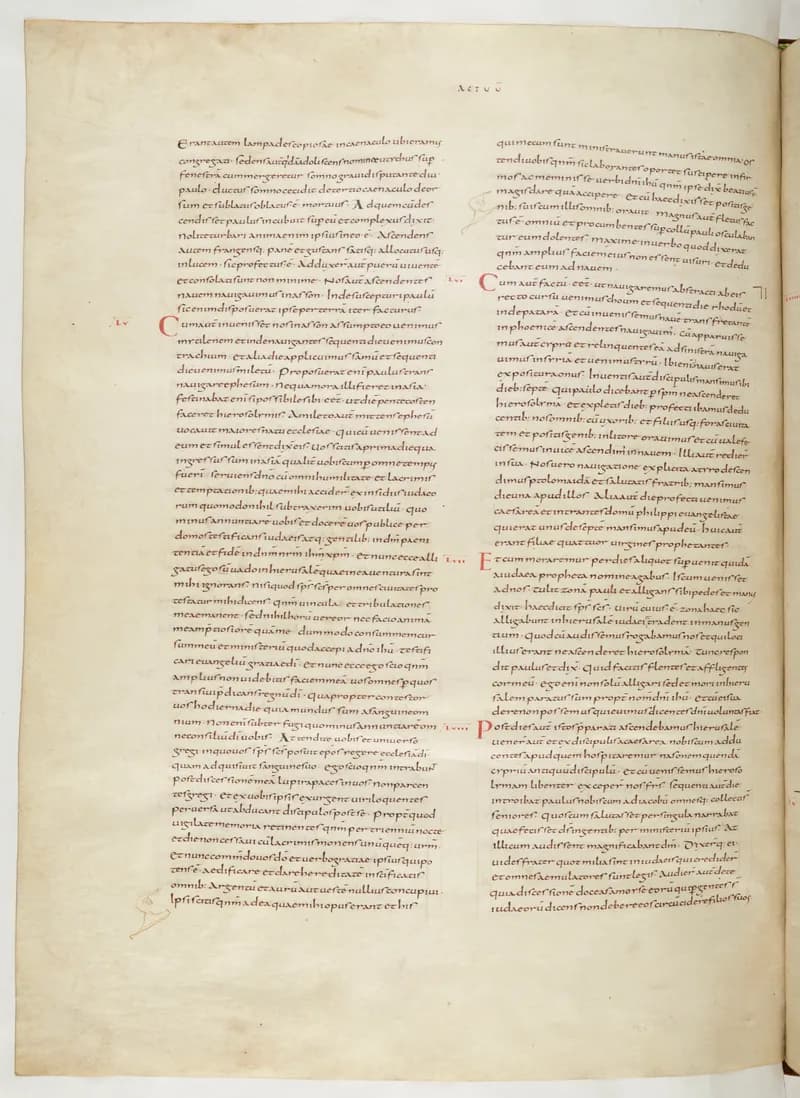 ACTUŪ
Erant autem lampades copiosae incaenaculo ubi eramus
congregati · sedens autē quidā adoliscens nomine eutychus sup
fenestrā cum mergeretur somno gravi disputante diu
paulo · ductus somno cecidit de tertio caenaculo deor
sum et sublatus oblatus ē mortuus · Ad quem cū des
cendisset paulus incubuit sup eū et complexus dixit ·
nolite turbari anima enim ipsius in eo ē · Ascendens
autem frangensq; pane et gustans satisq; allocutus usq;
in lucem · sic profectus ē · Adduxer aut puerū uiuente
et consolati sunt non minime · Nos aut ascendentes
nauem nauigauimus in asson · Inde suscepturi paulū
sic enim disposuerat ipse per terrā iter facturus ·
LV Cum aut inuenisset nos in asson assumpto eo uenimus
mytilenem et inde nauigantes sequenti die uenimus con
tra chium · et alia die applicuimus samū et sequenti
die uenimus miletū · Proposuerat enī paulus trans
nauigare ephesum · ne qua mora illi fieret in asia ·
festinabat enī si possibile sibi · eēt · ut diē pentecosten
faceret hierosolymis · A mileto aut mittens ephesū
uocauit maiores natu ecclesiae · qui cū uenissent ad
eum et simul essent dixit eis · Uos scitis a prima die qua
ingressus sum in asiā qualit uobiscum p omne tempus
fueri · seruiens dno cū omni humilitate et lacrimis
et temptationib; quae mihi accider ex insidiis iudaeo
rum quomodo nihil subtraxerim uobis utiliū · quo
minus annuntiarē uobis et docerē uos publice per
domos testificans iudaeis atq; gentilib; in dm paeni
tentia et fide in dnm nrm ihm xpm · Et nunc ecce alli
gatus ego spū uado in hierusale quae in ea uentura sint
mihi ignorans · nisi quod sps scs per omnes ciuitates pro
testatur mihi dicens · qnm uincula · et tribulationes
me manent · sed nihil horū uereor nec facio animā
meā p̄tiosiore quā me · dum modo consummem cur
sum meū et ministeriū quod accepi a dno ihu · testifi
cari euangeliū gratiae di · Et nunc ecce ego scio qnm
amplius non uidebitis faciem meā uos omnes p quos
transiui p̄dicans regnū di · Quapropter contestor
uos hodierna die quia mundus sum a sanguine om
nium · non enī subterfugi quo minus annuntiarē om
ne consiliū di uobis · Attendite uobis et uniuerso
gregi in quo uos sps scs posuit epos regere ecclesiā di
quam adquisiuit sanguine suo · Ego scio qnm intrabunt
post discessionē meā lupi rapaces in uos non parcen
tes gregi · et ex uobis ipsis exurgent uiri loquentes
peruersa ut abducant discipulos post se · Propt quod
uigilate memoria retinentes qnm per trienniū nocte
et die non cessaui cū lacrimis monens unū quēq; urm ·
Et nunc commdo uos dō et uerbo gratiae ipsius qui po
tens ē aedificare et dare hereditatē in scificatis
omnib; Argentū et aurū aut uestē nullius concupiui ·
Ipsi scitis qnm ad ea quae mihi opus erant et his
qui mecum sunt ministrauerunt manus istae omnia os
tendi uobis qnm sic laborantes oportet suscipere infir
mos ac meminisse uerbi dni ihu qnm ipse dix beatius ē
magis dare quā accipere · Et cū haec dixisset positis ge
nib; suis cum illis omnib; orauit · magnus aut fletus fac
tus ē omniū et procumbentes sup collū pauli osculaban
tur eum dolentes maxime in uerbo quod dixerat
qnm amplius faciem eius non essent uisuri · et dedu
cebant eum ad nauem ·
LVI Cum aut factū · eēt · ut nauigaremus abstracti ab eis
recto cursu uenimus choum et sequenti die rhodū et
inde patara · et cū inuenissemus nauē transfretante
in phoenice ascendentes nauigauim · cū apparuisse
mus aut cypru et relinquentes eā ad sinistrā nauiga
uimus in syria et uenimus tyrū · Ibi enī nauis erat
expositura onus · Inuentis aut discipulis mansimus ibi
dieb; septē · Qui paulo dicebant p spm ne ascenderet
hierosolyma · et expletis dieb; profecti ibamus dedu
centib; nos omnib; cū uxorib; et filiis usq; foras ciuita
tem et positis genib; in litore orauimus et cū ualefe
cissemus inuice ascendim in nauem · Illi aut redier
in sua · Nos uero nauigatione explicita a tyro descen
dimus ptolomaidā et salutatis fratrib; mansimus
die una apud illos · Alia aut die profecti uenimus
caesareā et intrantes domū philippi euangelistae
qui erat unus de septē mansimus apud eū · huic aut
erant filiae quattuor uirgines prophetantes ·
Et cum moraremur per dies aliquot supuenit quidā
a iudaea propheta nomine agabus · Is cum uenisset
ad nos · tulit zonā pauli et alligans sibi pedes et manus
dixit · haec dicit sps scs · uirū cuius ē · zona haec sic
alligabunt in hierusale iudaei et tradent in manus gen
tium · Quod cū audissemus rogabamus nos et qui loci
illius erant ne ascenderet hierosolyma · Tunc respon
dit paulus et dix · Quid facitis flentes et affligentes
cor meū · ego enī non solū alligari sed et mori in hieru
salem paratus sum propt nom dni ihu · Et cū ei sua
dere non possemus quieuimus dicentes dni uoluntas fiat
Post dies aut istos p̄parati ascendebamus hierusale ·
uener aut et ex discipulis a caesarea nobiscum addu
centes apud quem hospitaremur nasonem quendā
cypriū antiquū discipulū · Et cū uenissemus hieroso
lymam libenter exceper nos frs · sequenti aut die
introibat paulus nobiscum ad iacobū omnesq; collecti s
seniores · Quos cum salutasset per singula narrabat
quae fecisset ds in gentib; per ministeriū ipsius · At
illi cum audissent magnificabant dm · Dixerq; ei ·
uides frater quot milia sint in iudaeis qui credider
et omnes aemulatores sunt legis · Audier aut de te ·
quia discessionē doceas a moyse eorū qui p gentes s
iudaeorū dicens non debere eos circūcidere filios suos